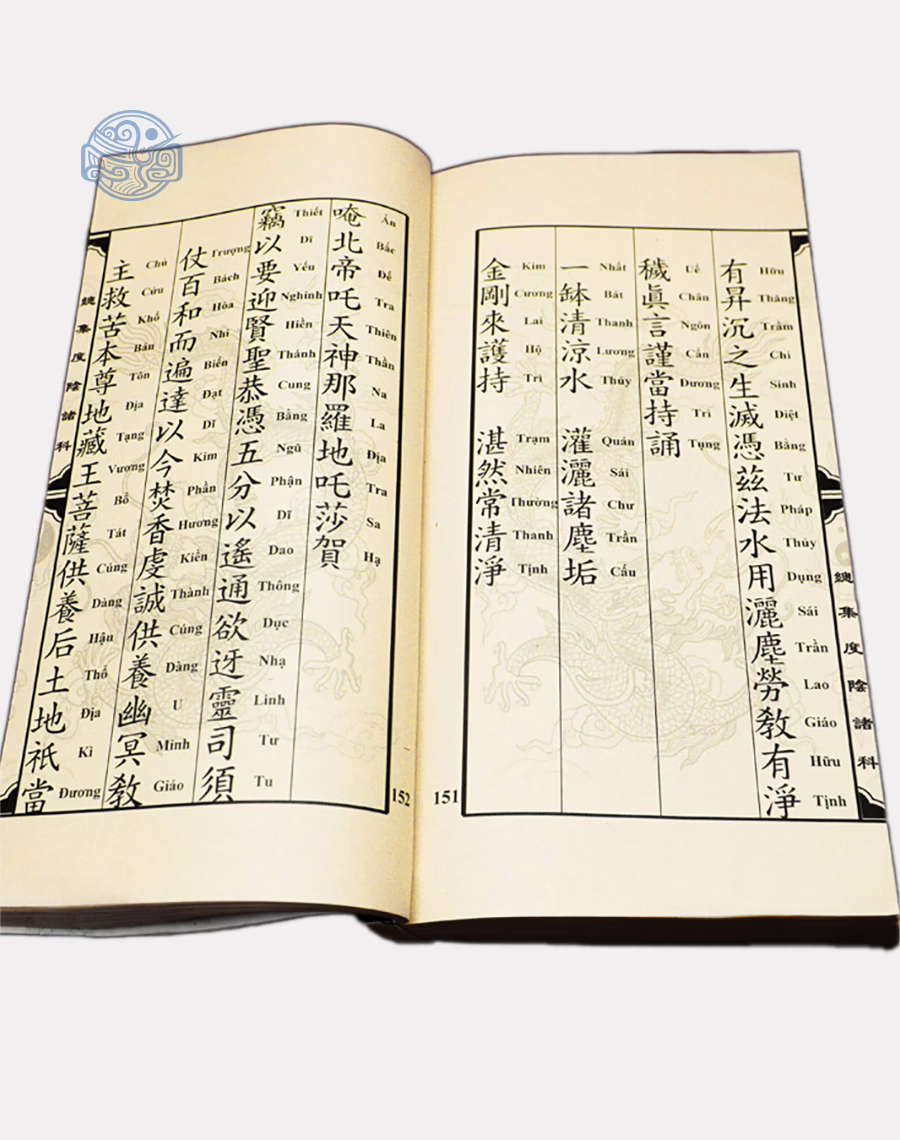 總集度陰諸科
有昇沉之生滅憑茲法水用灑塵勞教有淨
Hữu Thăng Trầm Chi Sinh Diệt Bằng Tư Pháp Thủy Dụng Sái Trần Lao Giáo Hữu Tịnh
穢眞言謹當持誦
Uế Chân Ngôn Cẩn Dương Trì Tụng
一缽清涼水 灌灑諸塵垢
Nhất Bát Thanh Lương Thủy Quán Sái Chư Trần Cấu
金剛來護持 湛然常清淨
Kim Cương Lai Hộ Trì Trạm Nhiên Thường Thanh Tịnh
151
唵北帝吒天神那羅地吒莎賀
Án Bắc Đế Tra Thiên Thần Na La Địa Tra Sa Hạ
竊以要迎賢聖恭憑五分以遙通欲迓靈司須
Thiết Dĩ Yếu Nghinh Hiền Thánh Cung Bằng Ngũ Phận Dĩ Dao Thông Dục Nhạ Linh Tư Tu
仗百和而遍達以今焚香虔誠供養幽冥教
Trượng Bách Hòa Nhi Biến Đạt Dĩ Kim Phần Hương Kiền Thành Cúng Dàng U Minh Giáo
主救苦本尊地藏王菩薩供養后土地祇當
Chủ Cứu Khổ Bản Tôn Địa Tạng Vương Bồ Tát Cúng Dàng Hậu Thổ Địa Kì Đương
152
總集度陰諸科